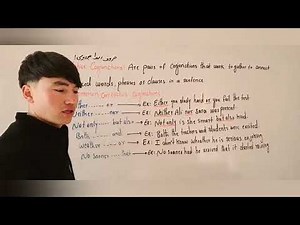 Conjunctions: Are pairs of Conjunctions that work together to connect
words, phrases or clauses in a sentence
Common Correlative Conjunctions
Either ...... or → Ex: Either you study hard or you fail the test.
Neither ...... nor → Ex: Neither Ali nor Sara was present
Not only ...... but also → Ex: Not only is she smart but also kind.
Both ...... and → Ex: Both the teachers and students were excited
Weather ...... or → Ex: I don't know weather he is serious or joking
No sooner ...... than → Ex: No sooner had he arrived that it started raining